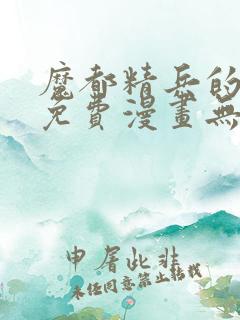 魔都精兵的
免費漫畫無
申屠此非
未经同意禁止转载